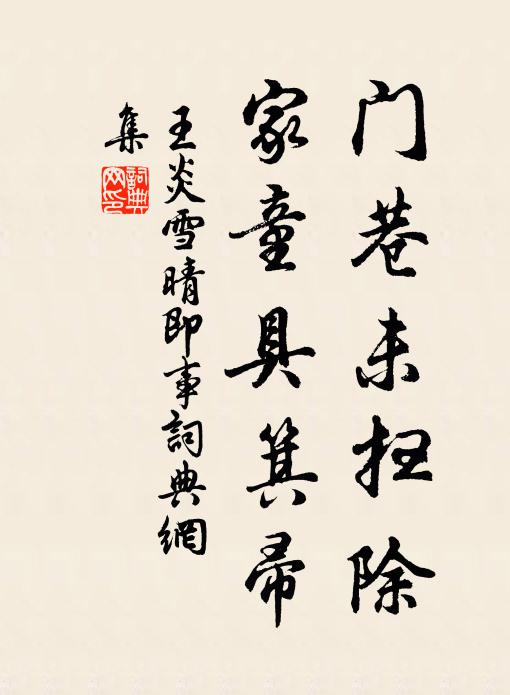 门巷未扫除
家童具箕帚
王炎雪晴即事詞典網
集
詞典网印